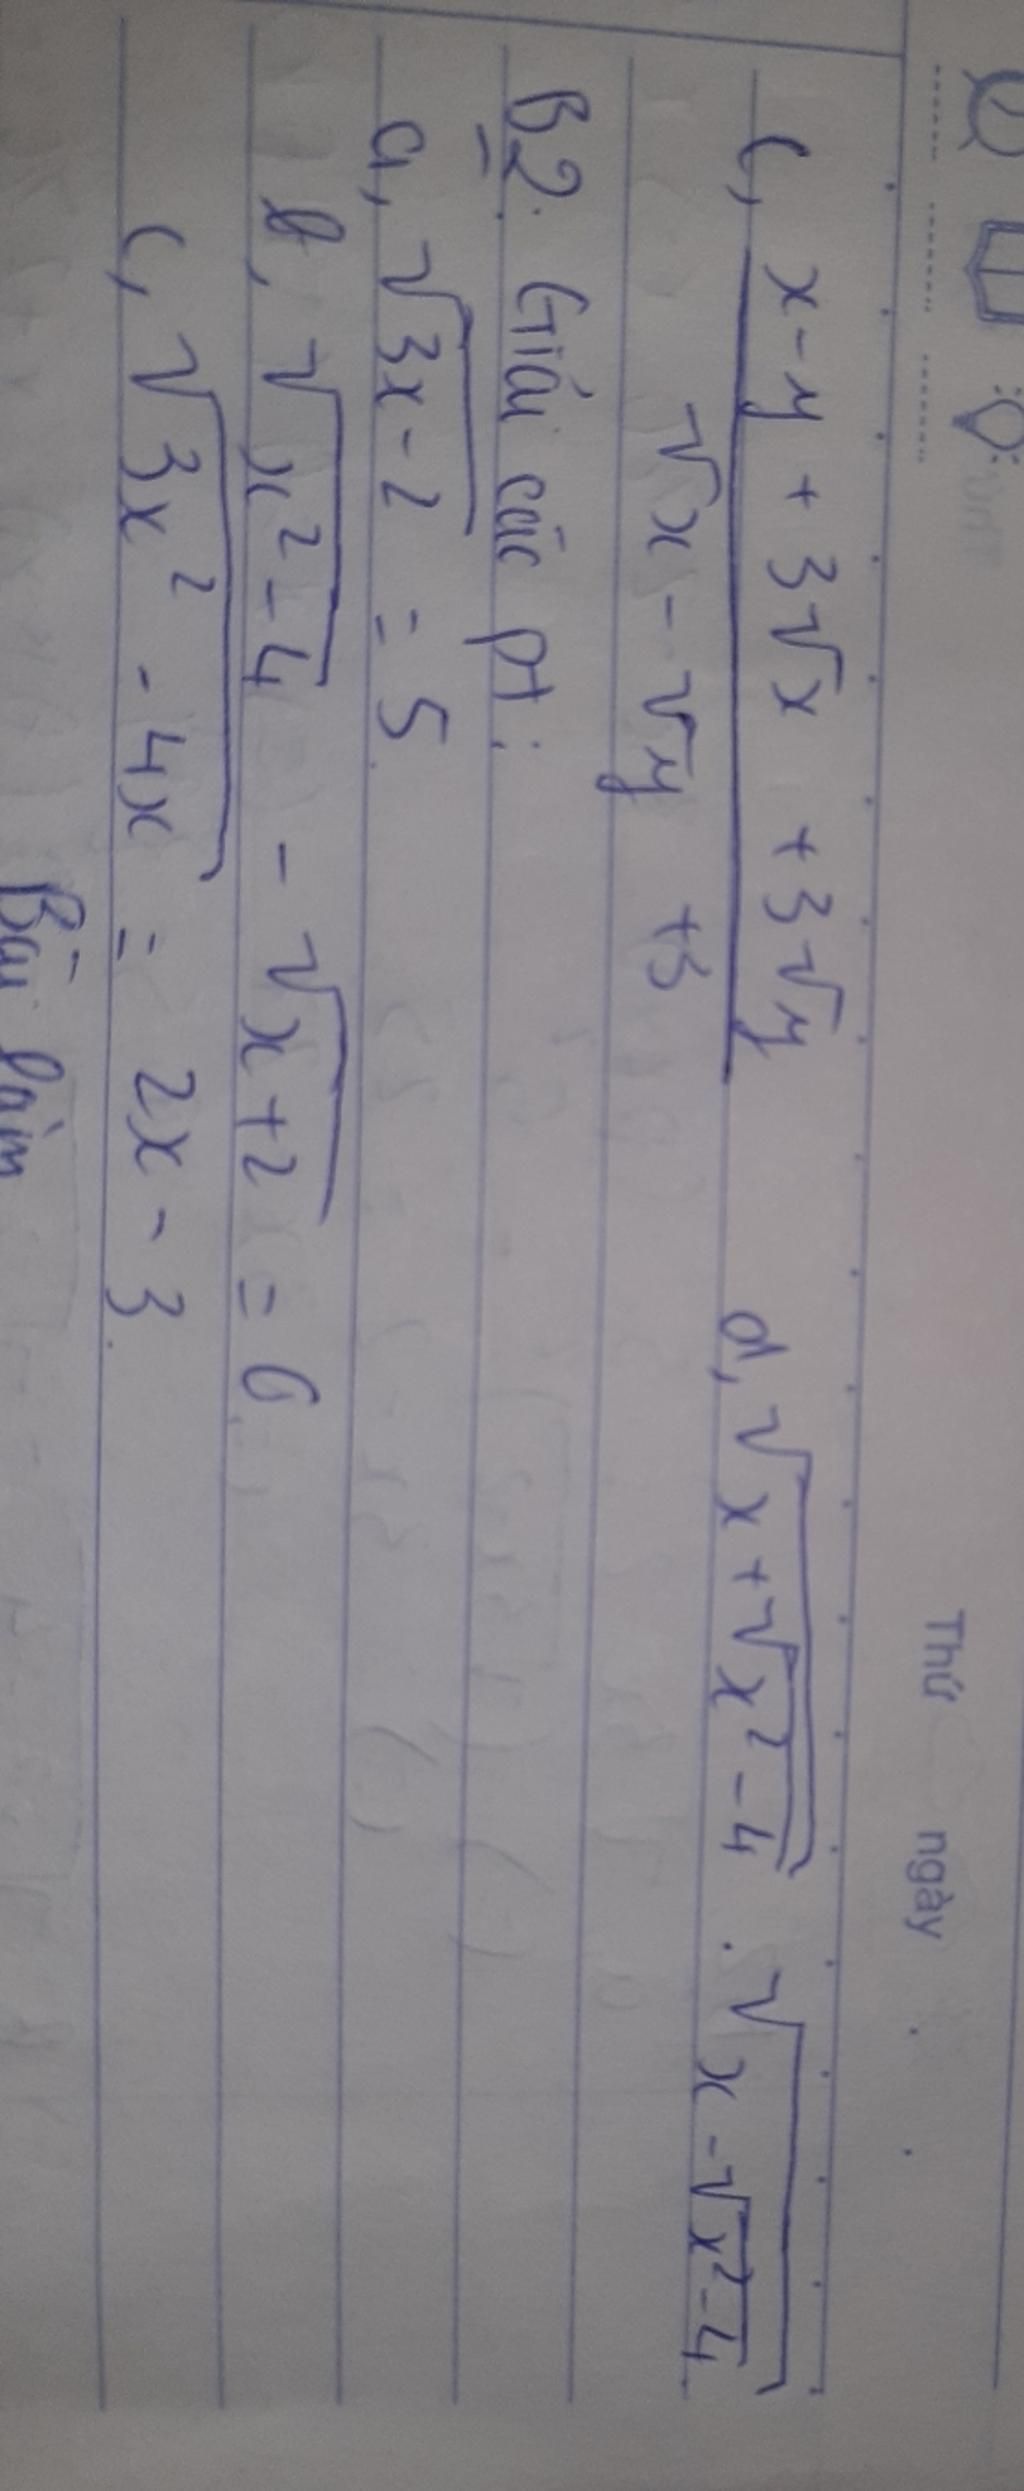 Thứ ngày
c, x-y + 3√x + 3√y / √x - √y +3 d, √(x+√(x²-4)) . √(x-√(x²-4))
B2. Giải các pt:
a, √(3x-2) = 5
b, √(x²-4) - √(x+2) = 0
c, √(3x² - 4x) = 2x - 3
Bài làm